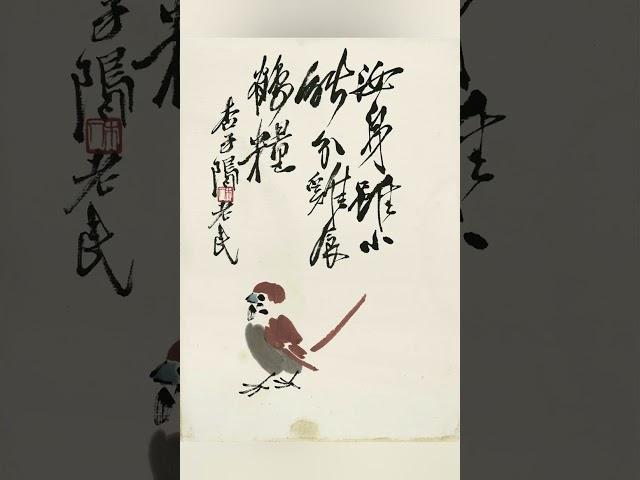 汝身雖小
能分雞食
鶴糧
杏子隖老民
木人